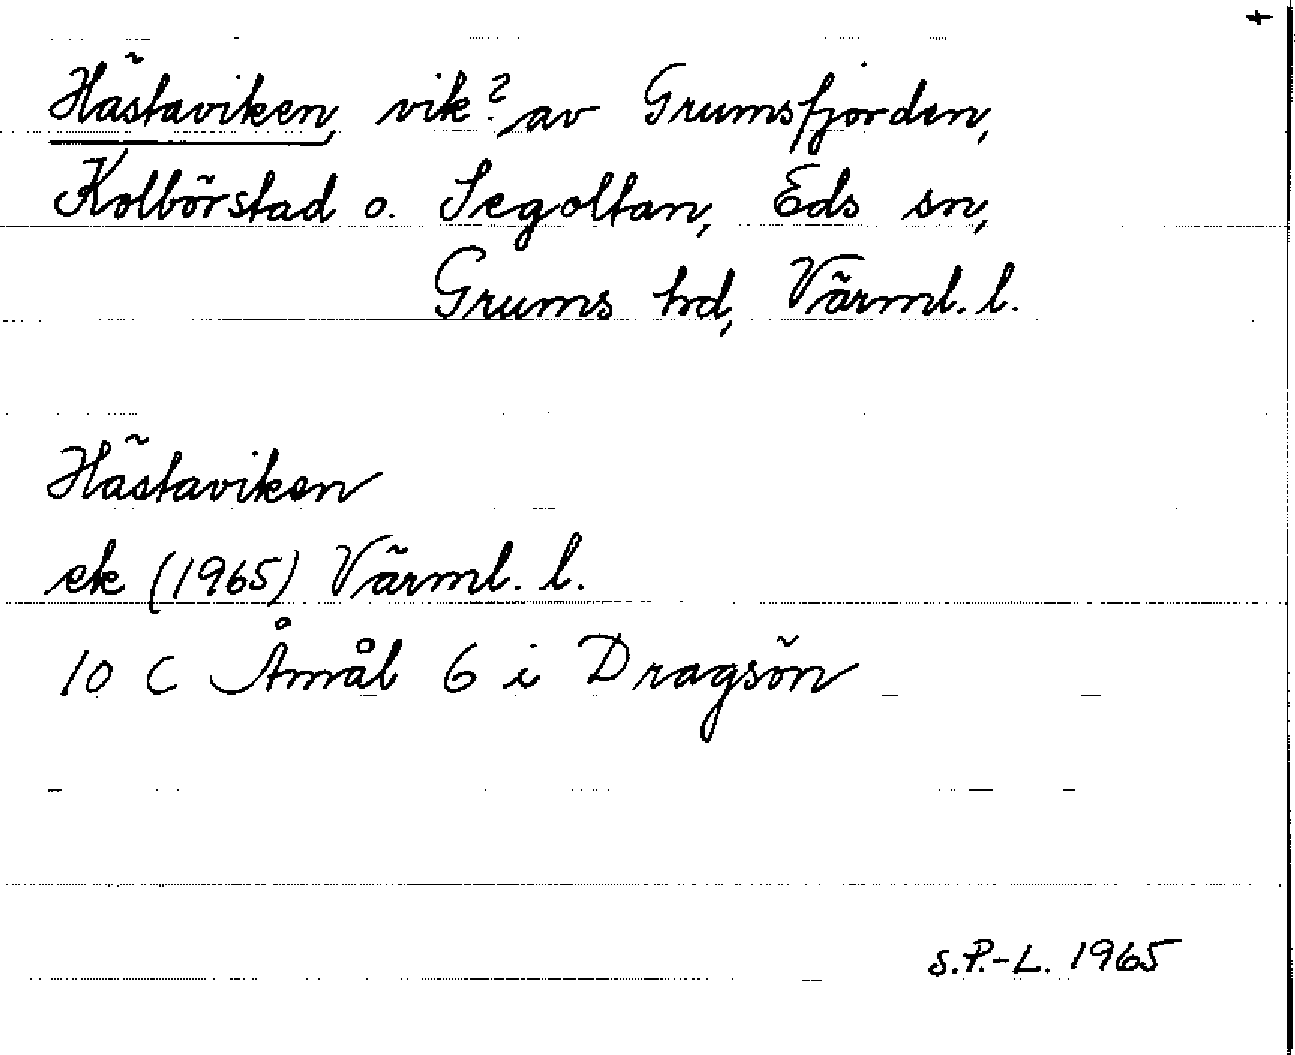 +
Hästaviken, vik? av Grumsfjorden,
Kolbörstad o. Segoltan, Eds sn,
Grums hd, Värml. l.
Hästaviken
ek (1965) Värml. l.
10 C Åmål 6 i Dragsön
S.P.-L. 1965